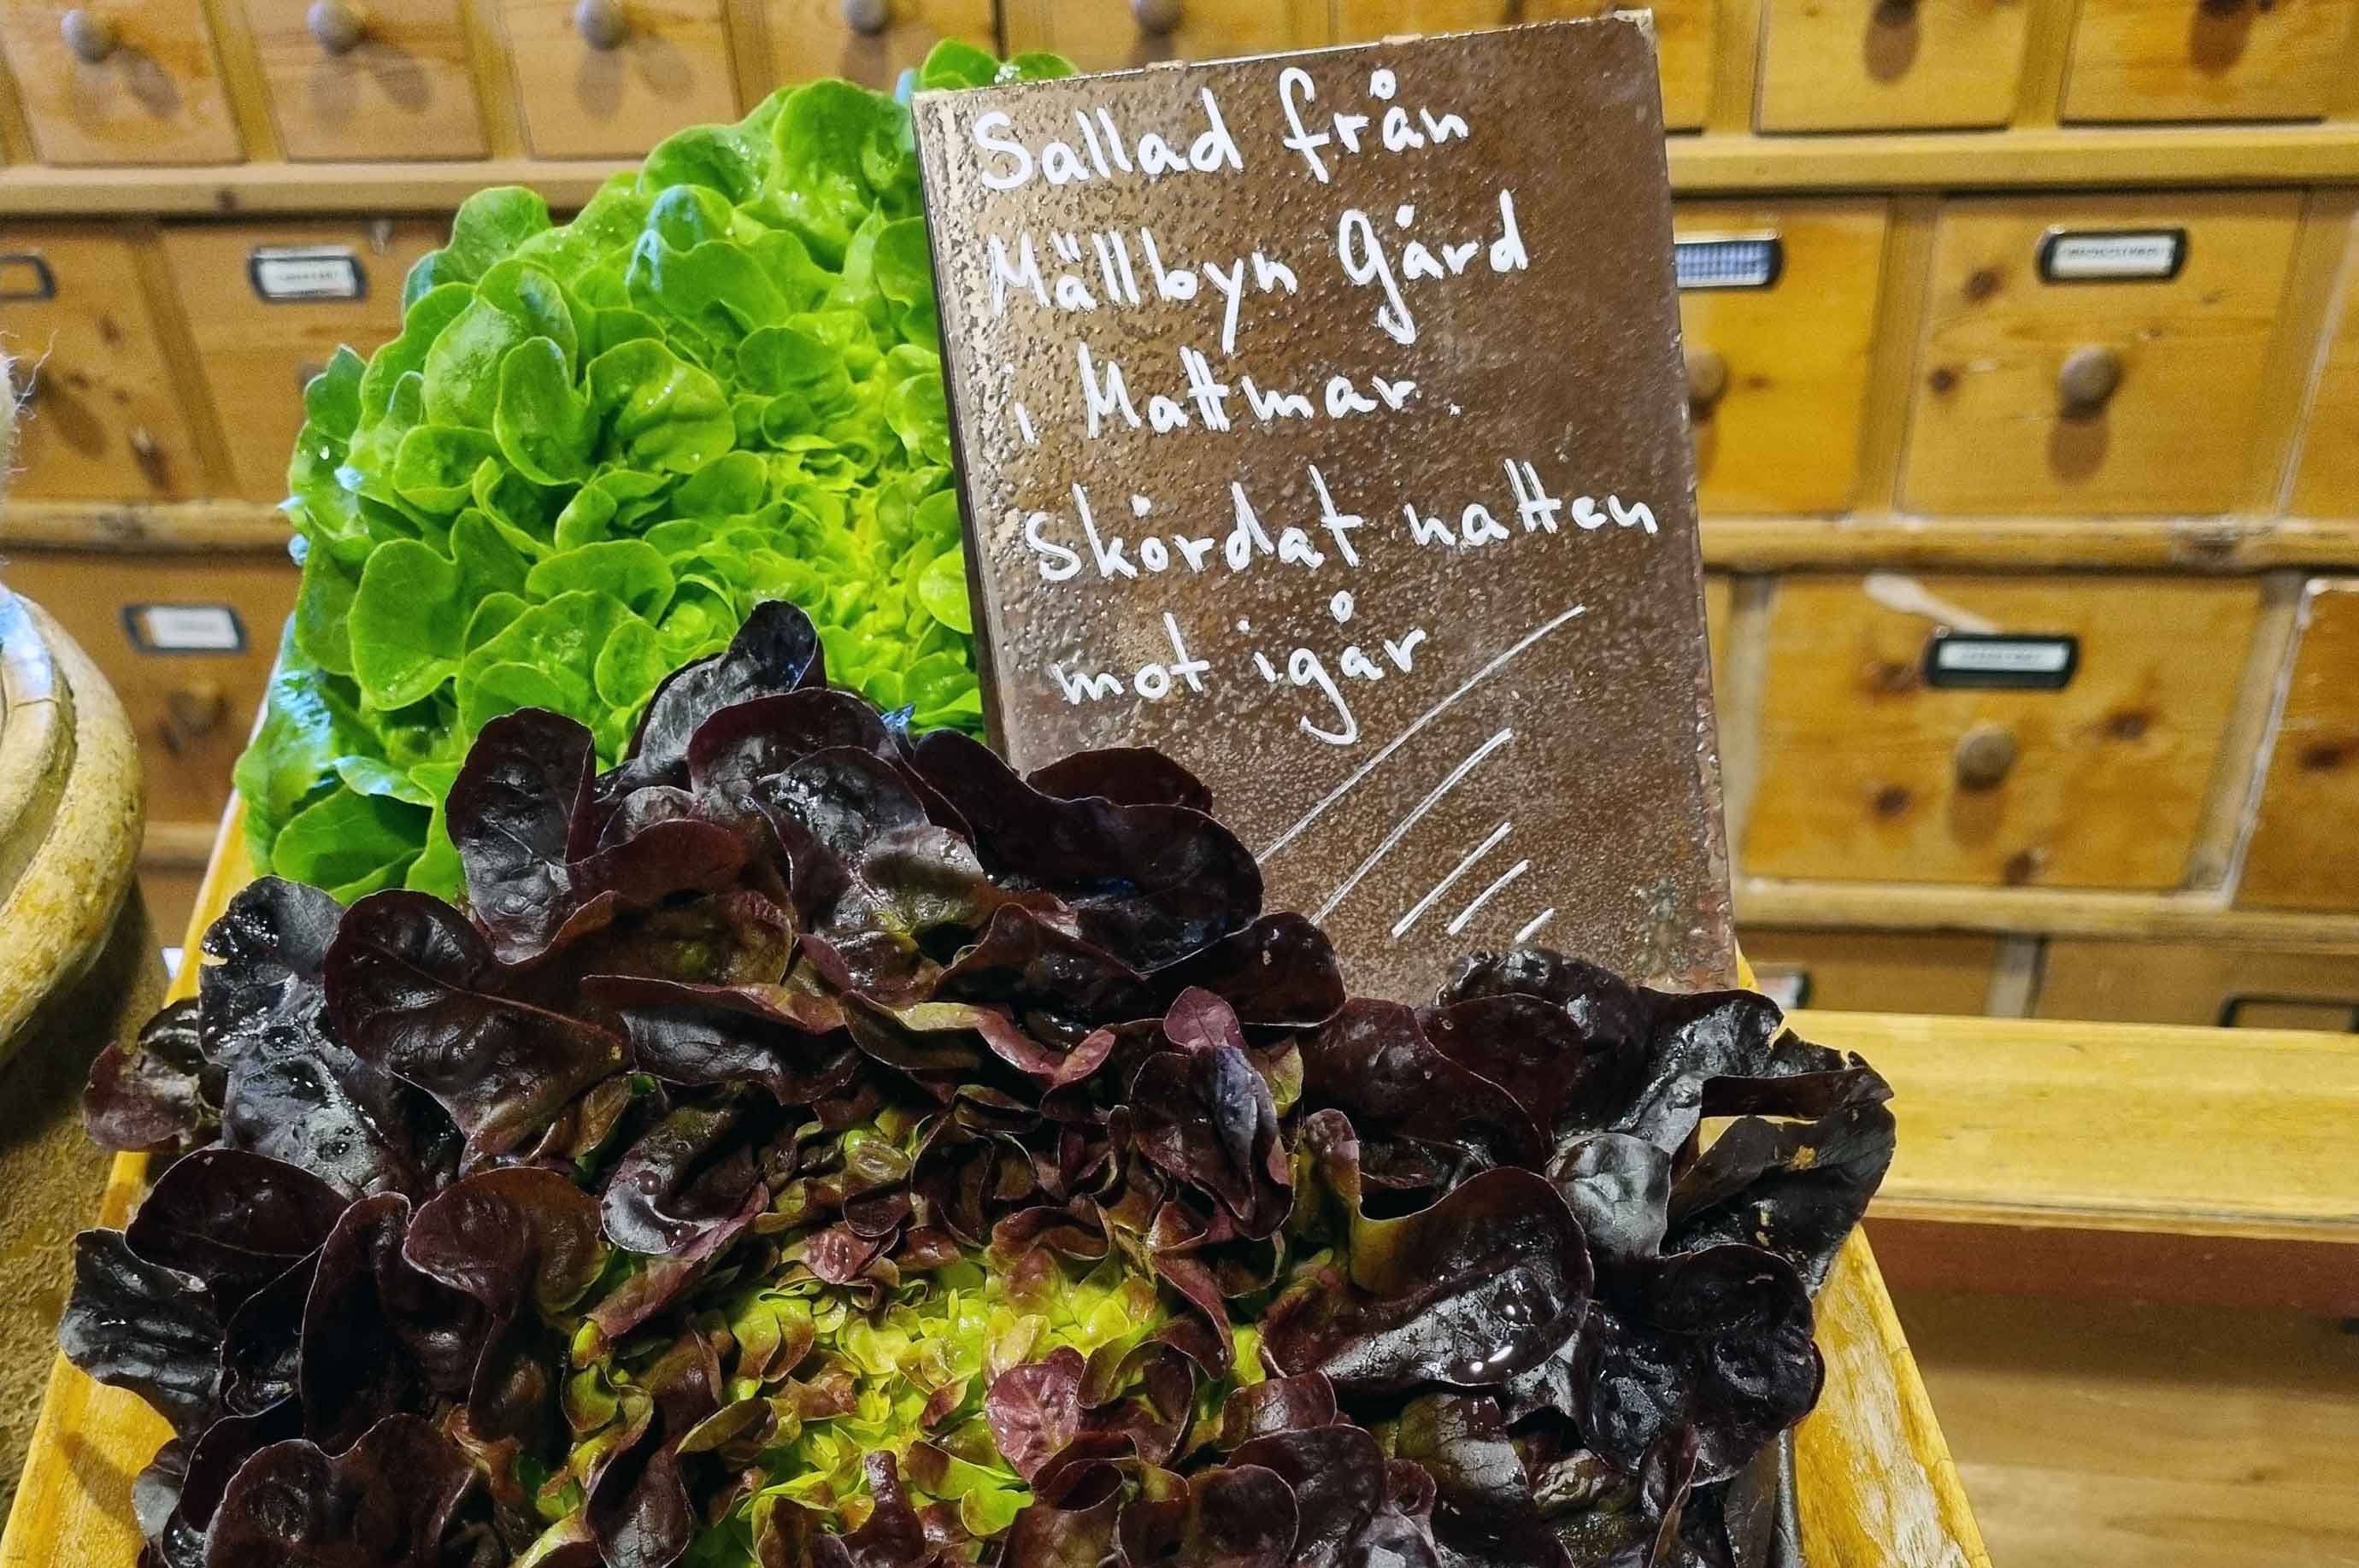 Sallad från
Mällbyn Gård
i Mattmar.
Skördat natten
mot igår